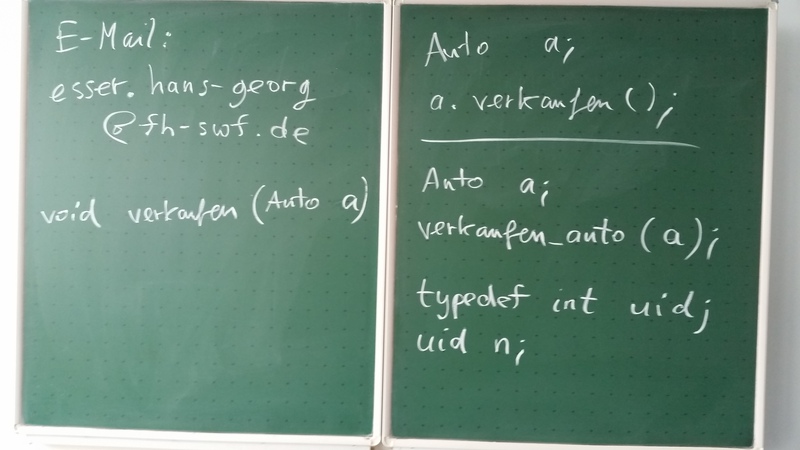 E-Mail:
esser.hans-georg
@fh-swf.de
void verkaufen (Auto a)
Auto a;
a.verkaufen();
Auto a;
verkaufen_auto (a);
typedef int uid;
uid n;